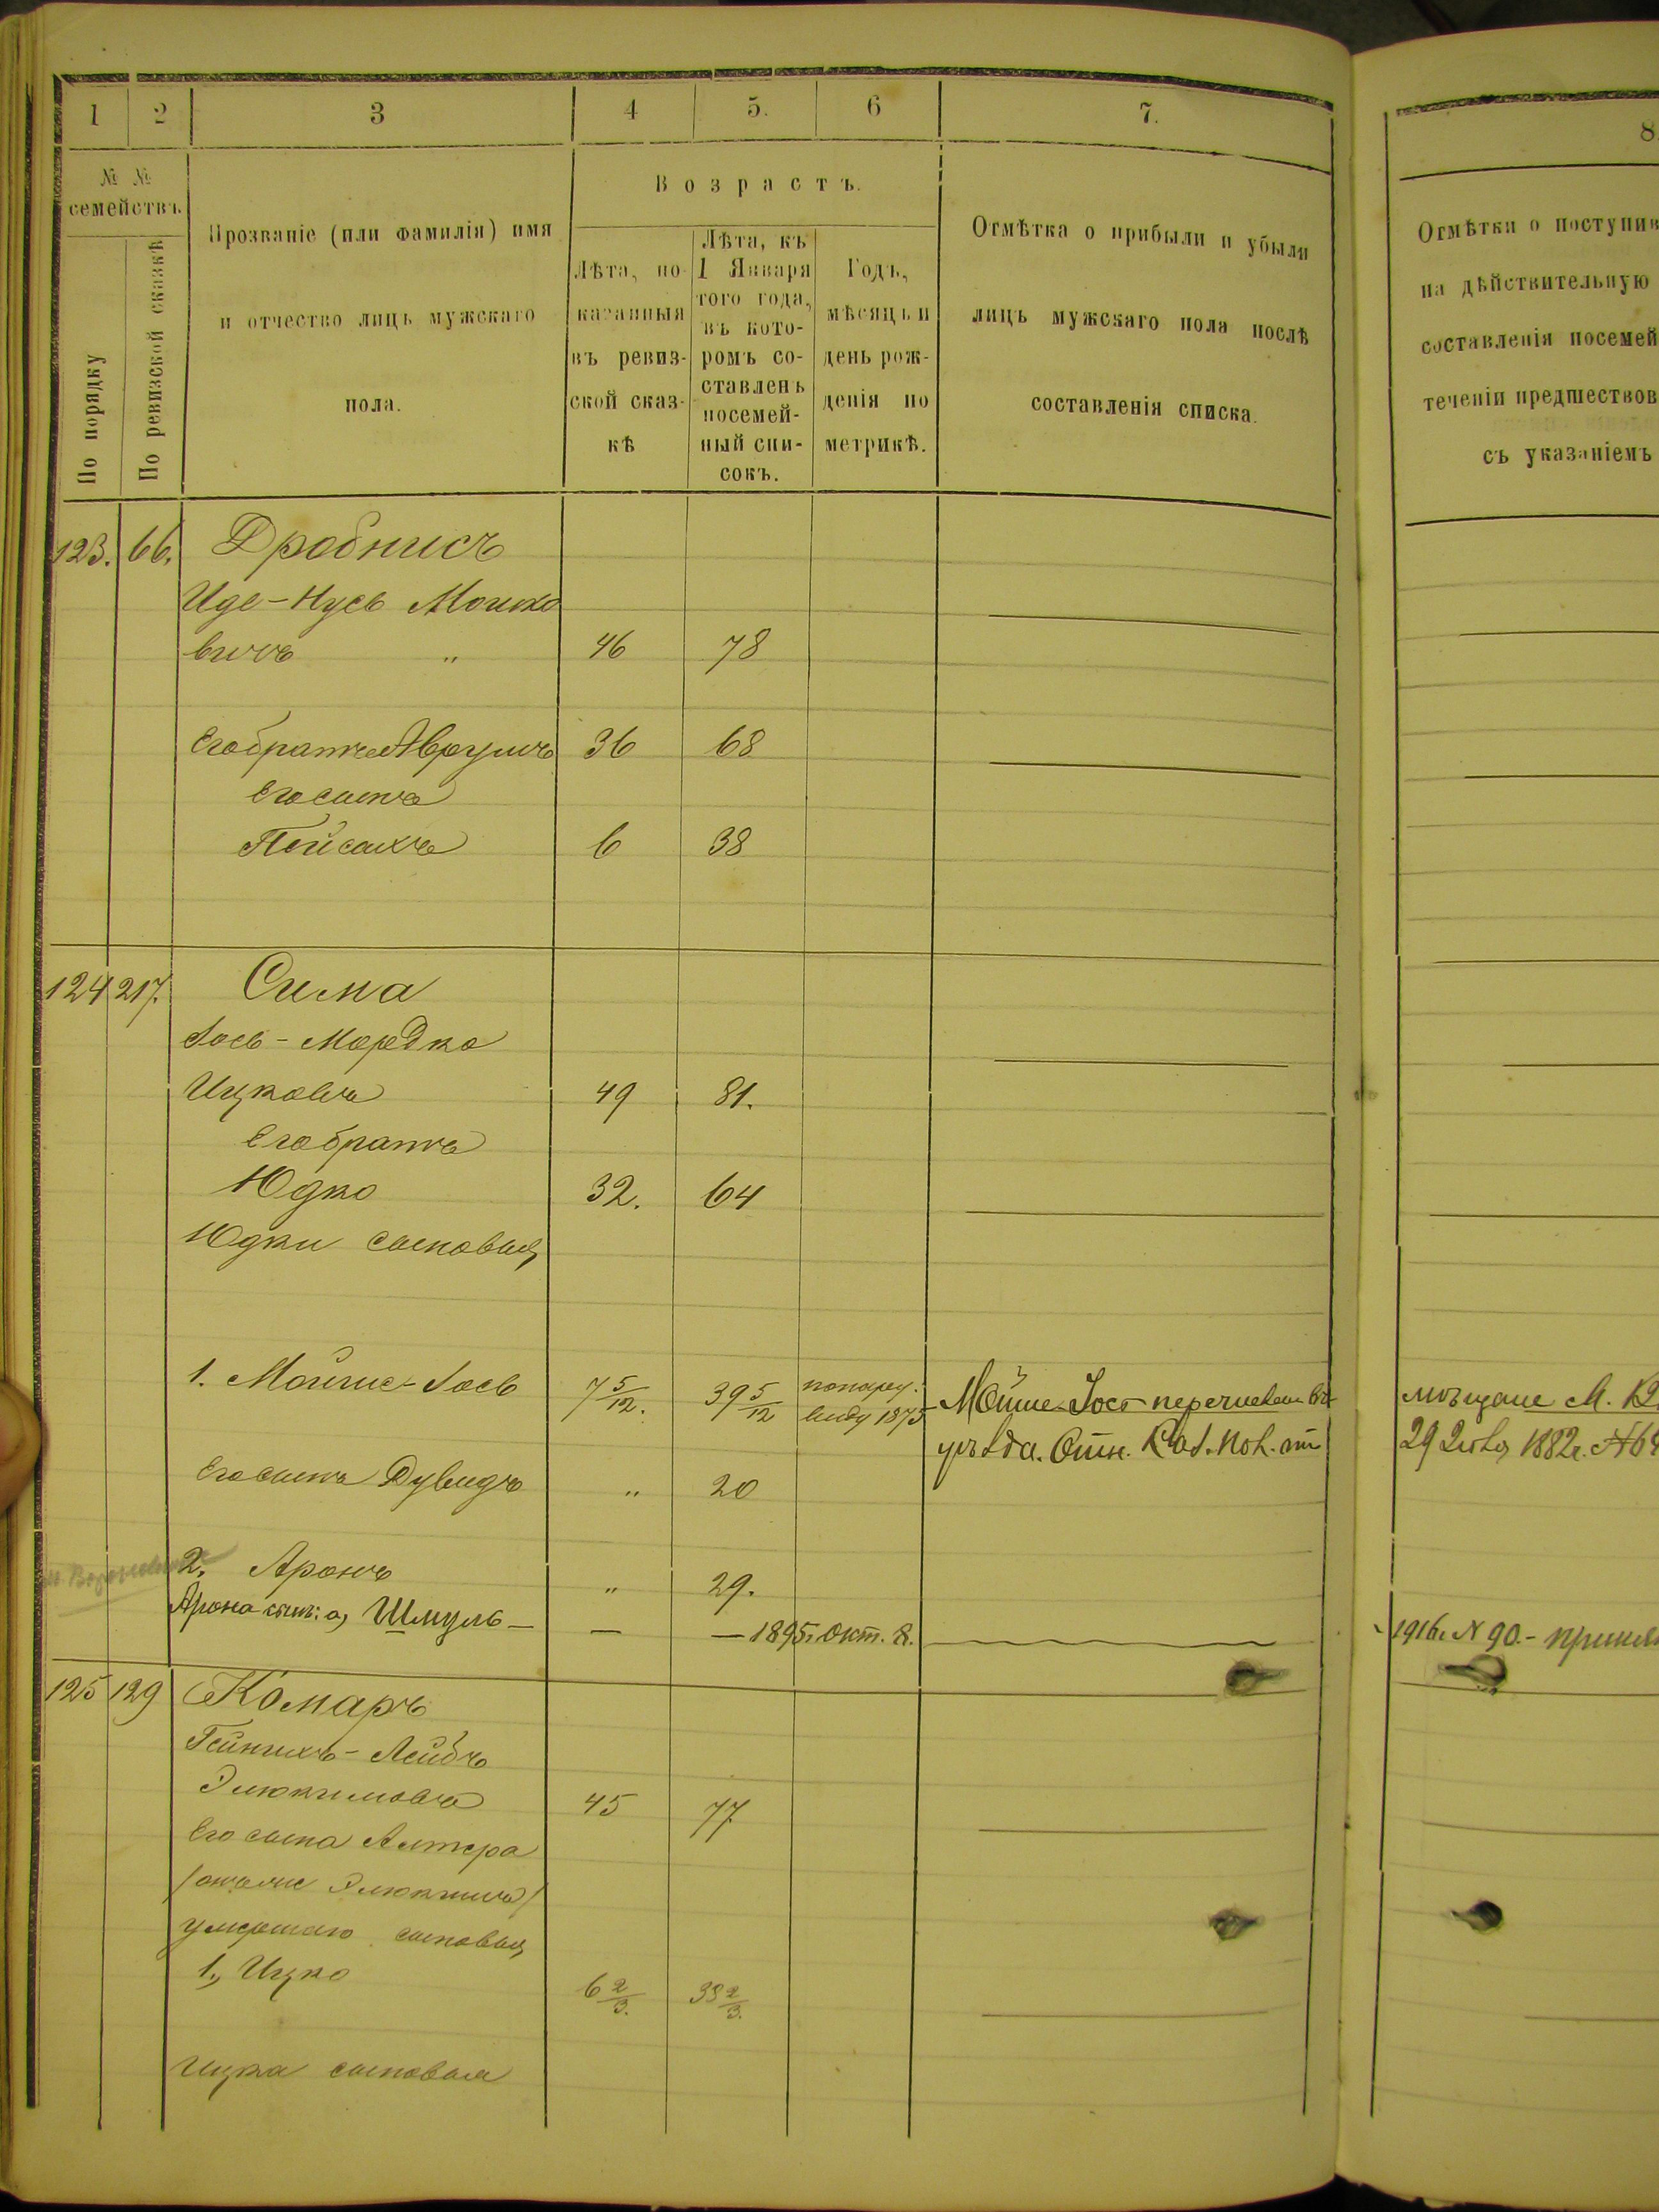 1 2 3 4 5. 6 7. 8
№ № семействъ
По порядку
По ревизской сказкѣ
Прозваніе (или фамилія) имя
и отчество лицъ мужскаго
пола.
Возрастъ.
Лѣта, по-
казанныя
въ ревиз-
ской сказ-
кѣ
Лѣта, къ
1 Января
того года,
въ кото-
ромъ со-
ставленъ
посемей-
ный спи-
сокъ.
Годъ,
мѣсяцъ и
день рож-
денія по
метрикѣ.
Отмѣтка о прибыли и убыли
лицъ мужскаго пола послѣ
составленія списка.
Отмѣтки о поступив
на дѣйствительную
составленія посемей
теченіи предшествов
съ указаніемъ
123. 66. Дробнисъ
Иде-Нусь Мошко
вичъ " 46 78
Его братъ Аврумъ 36 68
Его сынъ
Пейсахъ 6 38
124 217. Сима
Іось-Мордко
Ицковъ 49 81.
Его братъ
Юдко 32. 64
Юдки сыновья
1. Мойше-Іось 7 5/12. 39 5/12 по наруж. виду 1875 Мойше-Іось перечисленъ въ мѣщане М.
уѣзда. Отн. Каз. Пол. от 29 1882г. №
Его сынъ Дувидъ " 20
2. Аронъ " 29.
Арона сын: а, Шмуль — — — 1895г. Окт. 8. 1916г. N 90.-
125 129 Комаръ
Гейнихъ-Лейбъ
Элюкимовъ 45 77
Его сына Алтера
/онъ же Элюкимъ/
умершаго сыновья
1., Ицко 6 2/3. 38 2/3.
Ицка сыновья